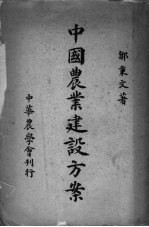 鄒秉文著
中國農業建設方案
中華農學會刊行